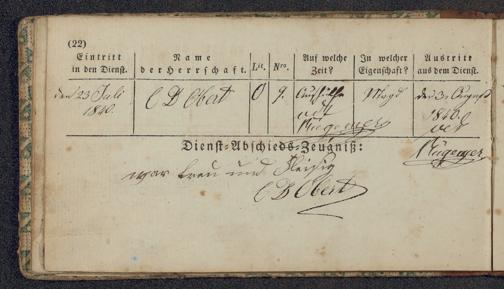 (22)
Eintritt in den Dienst.
Name der Herrschaft.
Lit.
Nro.
Auf welche Zeit?
In welcher Eigenschaft?
Austritt aus dem Dienst.
den 23 Juli 1840.
C D Obert
O
9.
Aushilfe
Magd
den 31 August 1840.
Dienst-Abschieds-Zeugniß:
war treu und fleißig
C D Obert